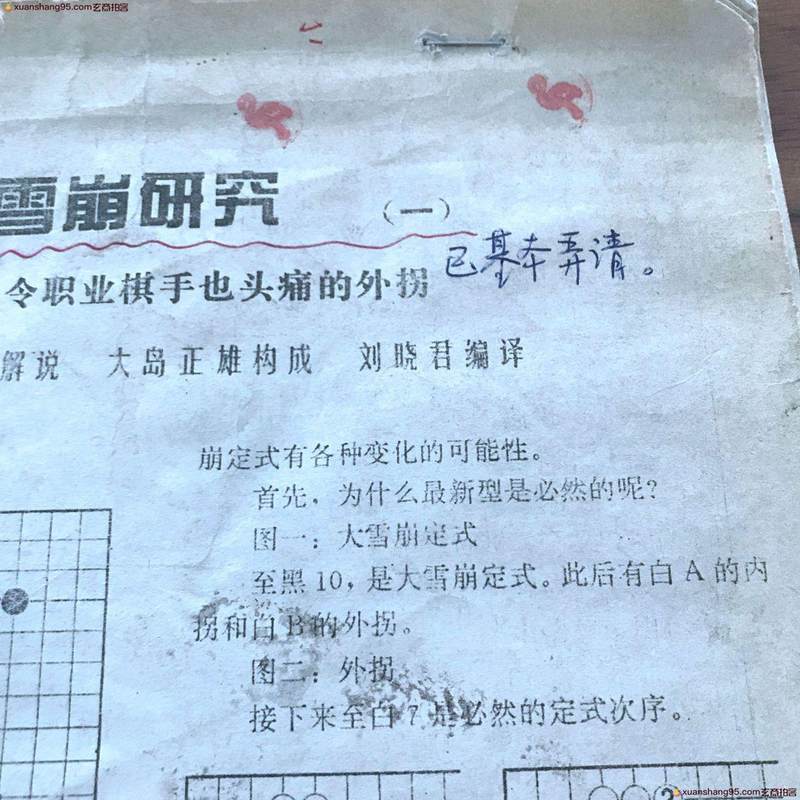 xuanshang95.com玄商拍客
雪崩研究 (一)
已基本弄清。
令职业棋手也头痛的外拐
解说 大岛正雄构成 刘晓君编译
崩定式有各种变化的可能性。
首先，为什么最新型是必然的呢？
图一：大雪崩定式
至黑10，是大雪崩定式。此后有白A的内
拐和白B的外拐。
图二：外拐
接下来至白7是必然的定式次序。
xuanshang95.com玄商拍客